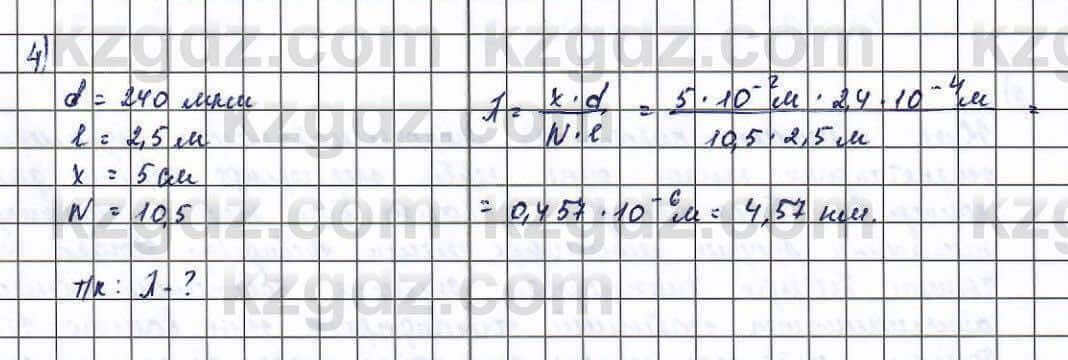 kzgdz.com kzgdz.com kz
4)
d = 240 мкм
l = 2,5 м
x = 5 см
N = 10,5
т/к: λ - ?
λ = x · d / N · l = 5 · 10⁻² м · 2,4 · 10⁻⁴ м / 10,5 · 2,5 м =
= 0,457 · 10⁻⁶ м = 4,57 нм.
kzgdz.com kzgdz.com kz
kzgdz.com